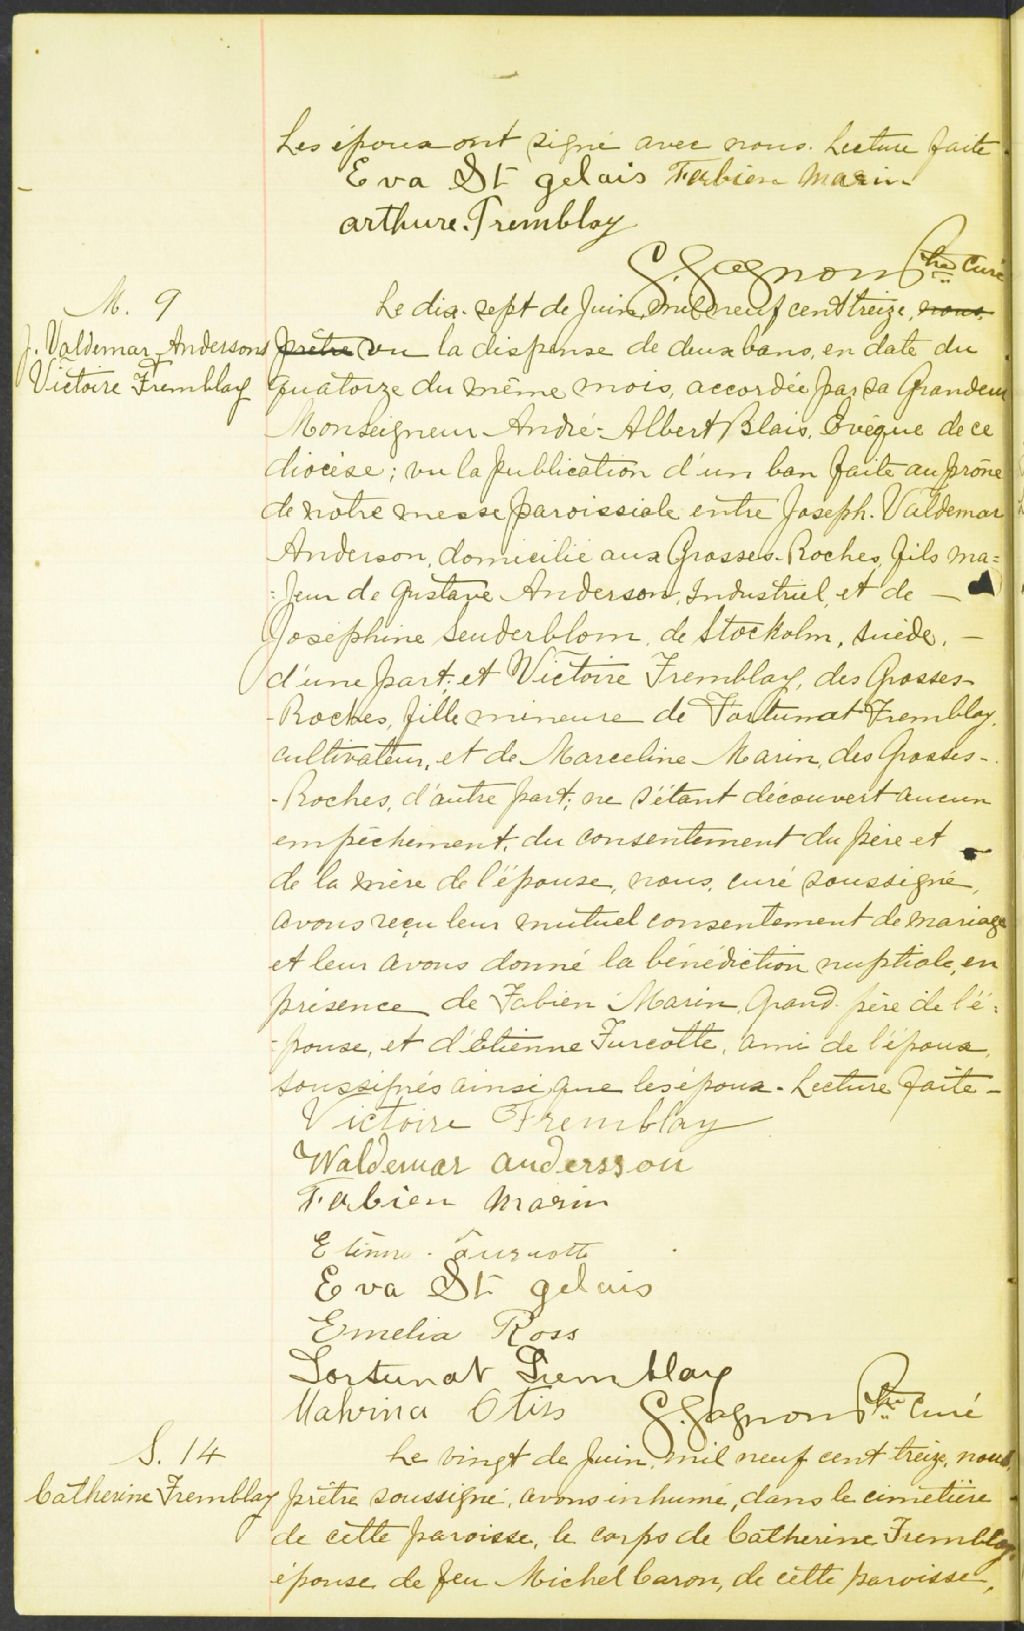 Les époux ont signé avec nous. Lecture faite.
Eva St gelais Fabien Marin
arthure. Tremblay
G. Gagnon Ptre curé
M. 9
J. Valdemar Andersons
Victoire Tremblay
Le dix-sept de Juin, mil neuf cent treize, nous
prêtre vu la dispense de deux bans, en date du
quatorze du même mois, accordée par sa Grandeur
Monseigneur André-Albert Blais, Evêque de ce
diocèse; vu la publication d'un ban faite au prône
de notre messe paroissiale entre Joseph. Valdemar
Anderson, domicilié aux Grosses-Roches, fils ma=
=jeur de Gustave Anderson, Industriel, et de —
Joséphine Seuderblom, de Stockolm, Suède, —
d'une part; et Victoire Tremblay, des Grosses-
-Roches, fille mineure de Fortunat Tremblay,
cultivateur, et de Marceline Marin, des Grosses-
-Roches, d'autre part; ne s'étant découvert aucun
empêchement, du consentement du père et
de la mère de l'épouse, nous, curé soussigné,
avons reçu leur mutuel consentement de mariage
et leur avons donné la bénédiction nuptiale, en
présence de Fabien Marin, Grand-père de l'é=
=pouse, et d'Etienne Turcotte, ami de l'époux,
soussignés ainsi que les époux. Lecture faite —
Victoire Tremblay
Waldemar andersson
Fabien Marin
Eva St gelais
Emelia Ross
Fortunat Tremblay
Malvina Otis G. Gagnon Ptre Curé
S. 14
Catherine Tremblay
Le vingt de Juin, mil neuf cent treize, nous,
prêtre soussigné, avons inhumé, dans le cimetière
de cette paroisse, le corps de Catherine Tremblay,
épouse de feu Michel Caron, de cette paroisse,